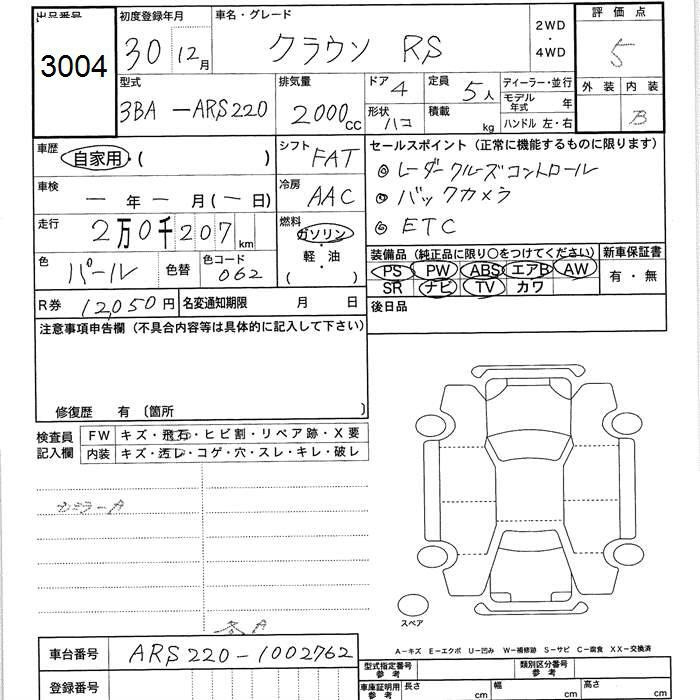 出品番号 初度登録年月 車名・グレード 2WD ・ 4WD 評価点
3004 30 12月 クラウン RS 5
型式 排気量 ドア 4 定員 5人 ディーラー・並行 外装 内装
3BA-ARS220 2000cc 形状 ハコ 積載 kg モデル年式 年 B
ハンドル 左・右
車歴 自家用・( ) シフト FAT セールスポイント(正常に機能するものに限ります)
◎ レーダークルーズコントロール
車検 ー年 ー月(ー日) 冷房 AAC ◎ バックカメラ
走行 2万0千207km 燃料 ガソリン ・ 軽・油 ( ) ◎ ETC
色 パール 色替 色コード 062 装備品(純正品に限り○をつけてください) 新車保証書
PS PW ABS エアB AW 有・無
SR ナビ TV カワ
R券 12,050円 名変通知期限 月 日 後日品
注意事項申告欄(不具合内容等は具体的に記入して下さい)
修復歴 有 〔箇所 〕
検査員記入欄 FW キズ・飛石・ヒビ割・リペア跡・X要
内装 キズ・汚レ・コゲ・穴・スレ・キレ・破レ
スペア
A-キズ E-エクボ U-凹み W-補修跡 S-サビ C-腐食 XX-交換済
車台番号 ARS220-1002762 型式指定番号 参考 類別区分番号 参考
登録番号 車庫証明用 参考 長さ cm 幅 cm 高さ cm